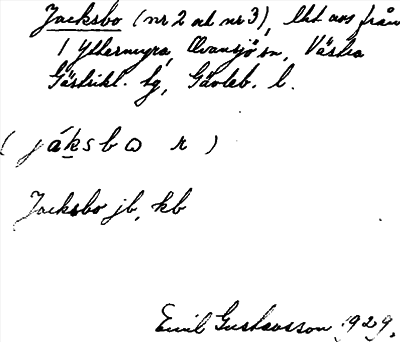 Jacksbo (nr 2 och nr 3), lht avs från
1 Yttermyra, Ovansjö sn, Västra
Gästrikl. tg, Gävleb. l.
( jáksbω r )
Jacksbo jb, kb
Emil Gustavsson 1929.